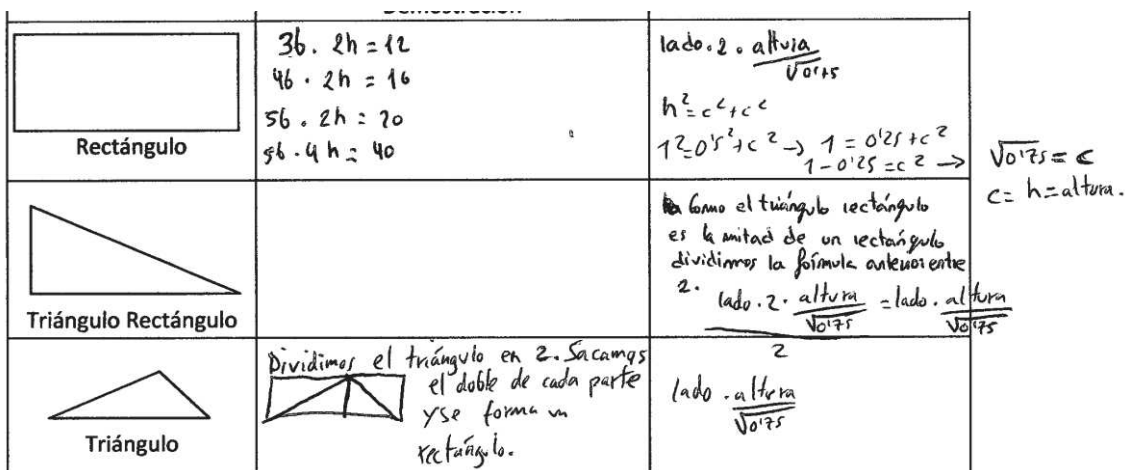 Demostración
Rectángulo
3b. 2h = 12
4b · 2h = 16
5b . 2h = 20
5b · 4h = 40
lado · 2 · altura / √0'75
h² = c² + c²
1² = 0'5² + c² → 1 = 0'25 + c²
1 - 0'25 = c² →
√0'75 = c
c = h = altura.
Triángulo Rectángulo
Como el triángulo rectángulo
es la mitad de un rectángulo
dividimos la fórmula anterior entre
2.
lado · 2 · altura / √0'75 = lado · altura / √0'75
2
Triángulo
Dividimos el triángulo en 2. Sacamos
el doble de cada parte
y se forma un
rectángulo.
lado · altura / √0'75